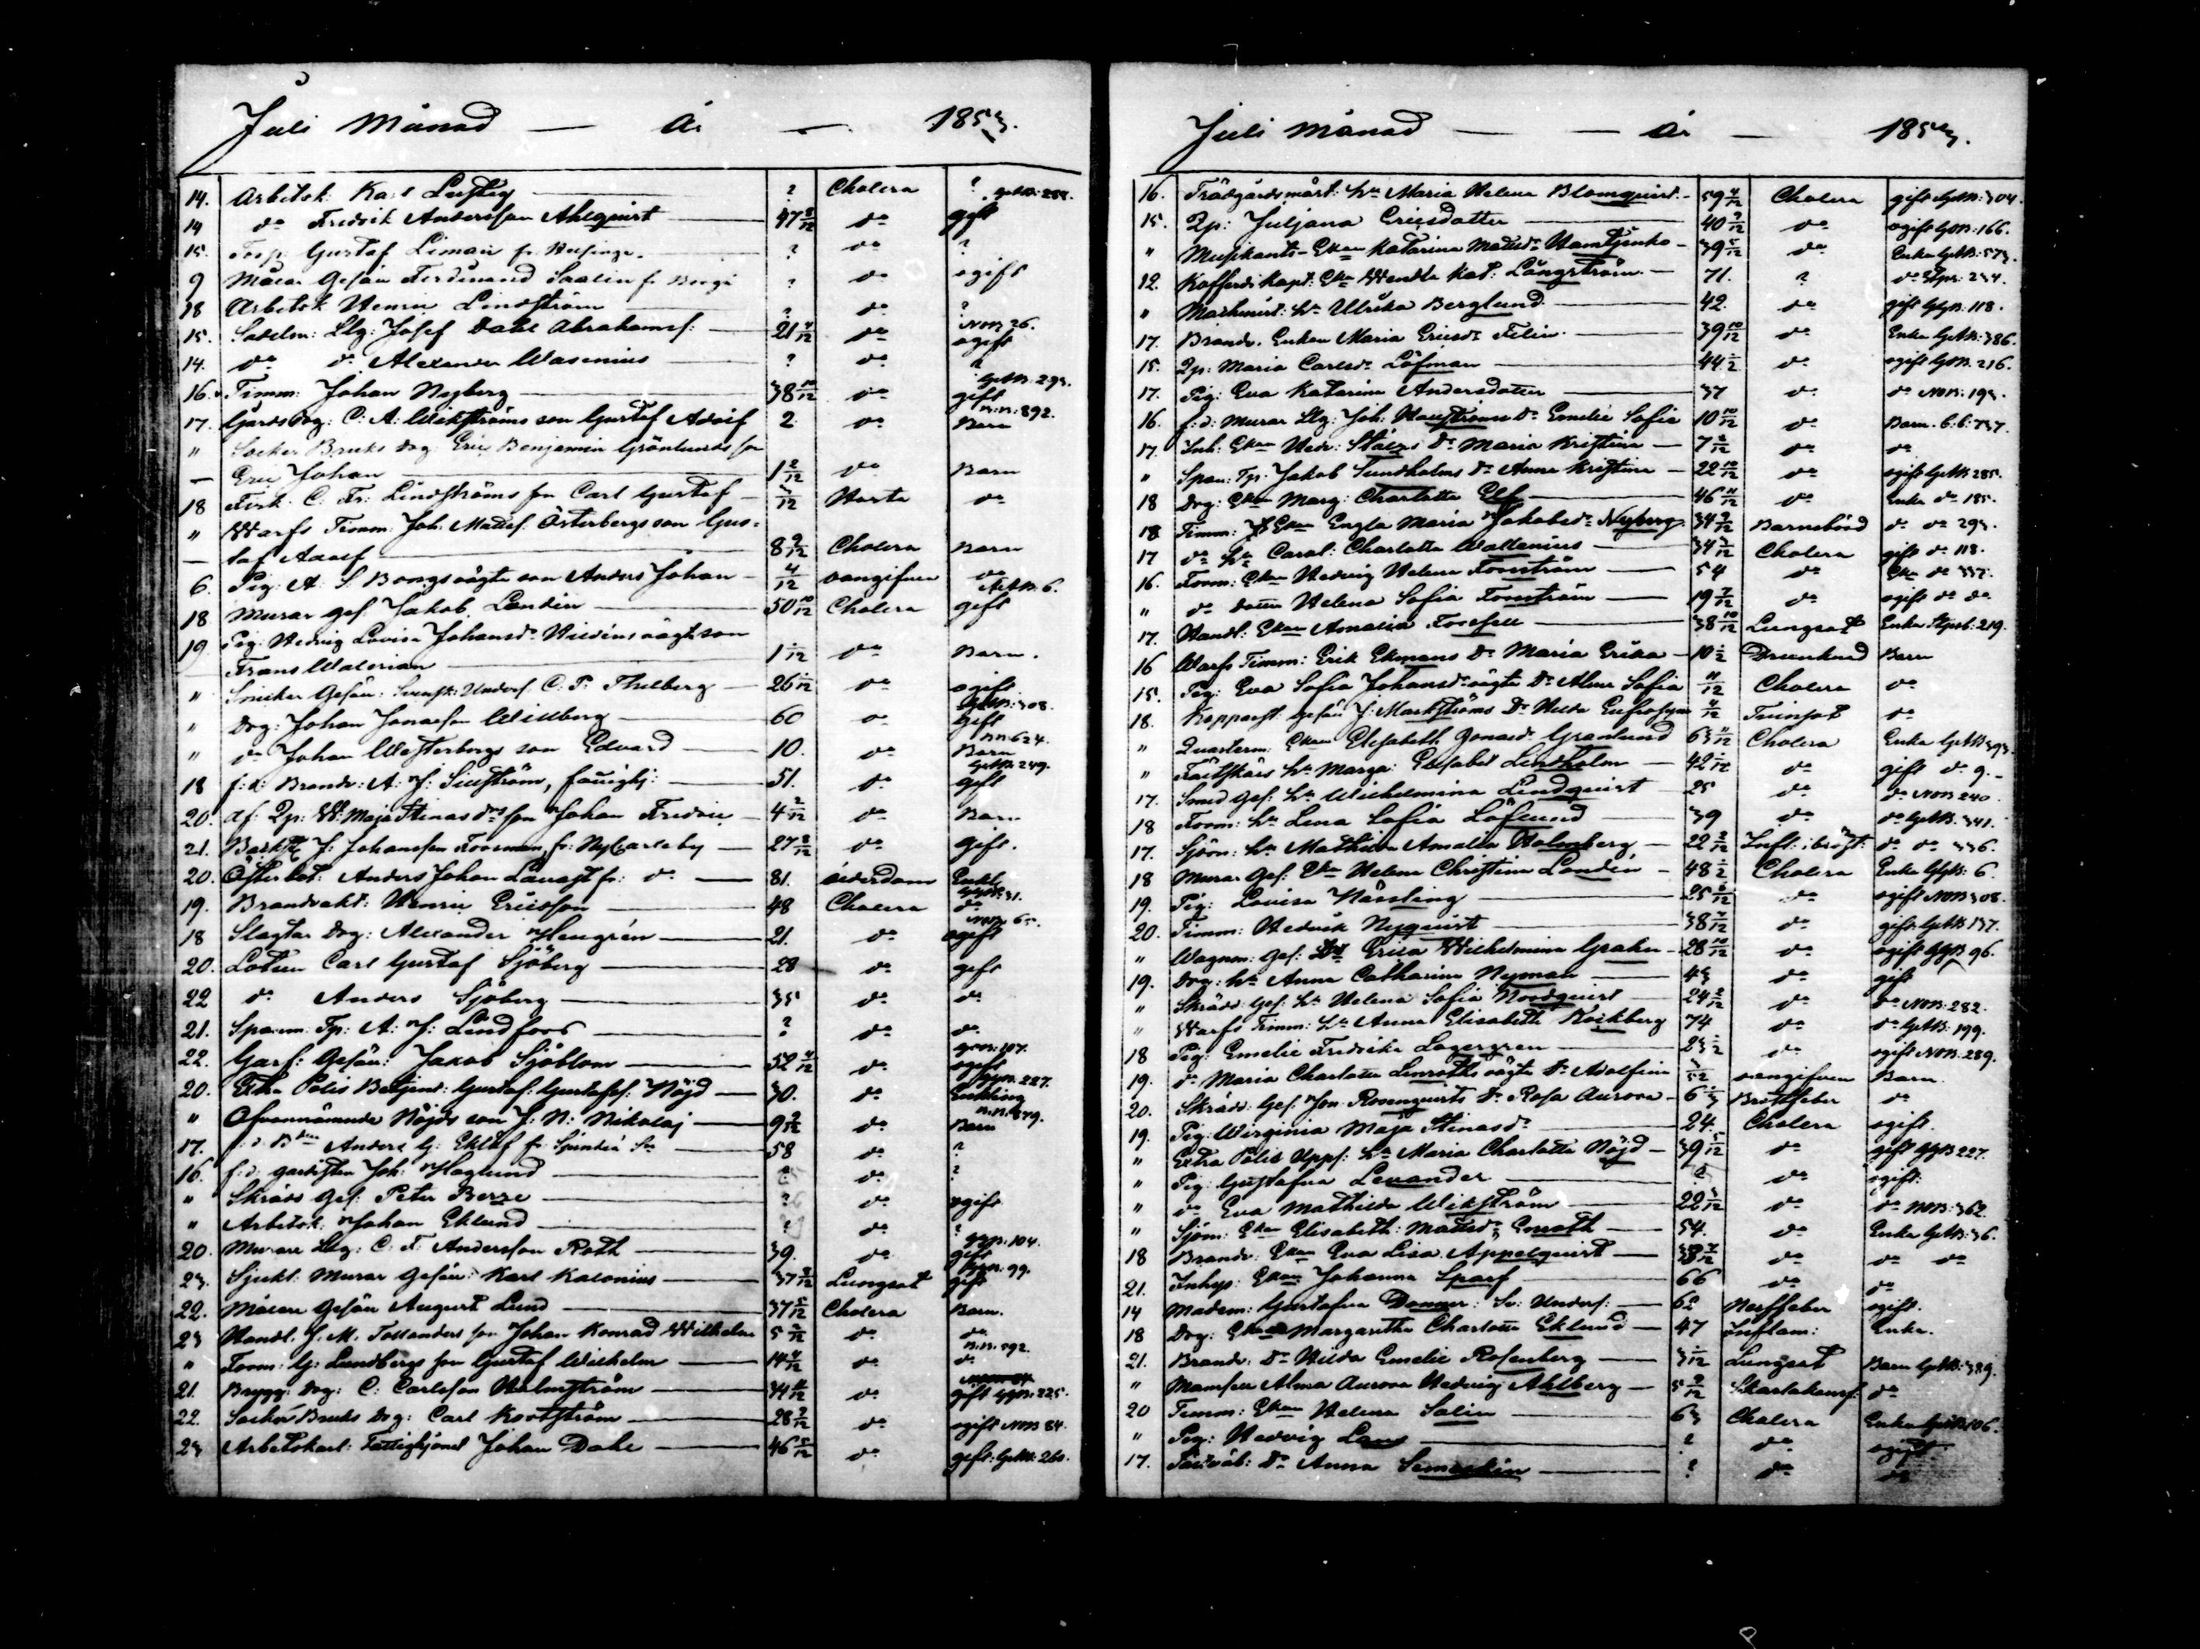 Juli Månad — År — 1853.
14. Arbetsk: Karl Lustig — ? Cholera ?
14 do Fredrik Andersson Ahlquist — 47 8/12 do gift
15. Gustaf Liman fr Helsinge. ? do ?
9 Målar Gesän Ferdinand Saalin fr Borgå ? do ogift
18 Arbetsk Henric Lindström ? do ?
15. Sadelm: Llg: Josef Dahl Abrahamsf: — 21 4/12 do ogift
14. do do Alexander Wasenius — ? do ?
16. Timm: Johan Nyberg — 38 10/12 do gift
17. Gårds Dog: C. A. Wikströms son Gustaf Adolf 2 do Barn
" Socker Bruks Dog: Eric Benjamin Grönlunds son
— Eric Johan — 1 2/12 do Barn
18 C. Fr: Lindströms son Carl Gustaf — 3/12 Hosta do
" Warfs Timm: Joh: Mattsf. Österbergs son Gus-
— taf Adolf — 8 9/12 Cholera Barn
6. Pig: A. S. Bongs oägta son Anders Johan — 4/12 oangifven do
18 Murar gef. Jakob Landin — 50 10/12 Cholera gift
19 Pig: Hedvig Lovisa Johansdr Widéns oägta son
Frans Walerian — 1 /12 do Barn.
" Snickar Gesän: Svensk: Unders. C. P. Thelberg — 26 /12 do ogift
" Dog: Johan Jonasson Willberg — 60 do gift
" do Johan Westerbergs son Edvard — 10. do Barn
18 f: d: Brandv: A: J: Silfström, fattighj: — 51. do gift
20. af: Qp: W: Maja Stinas dr son Johan Fredric — 4 2/12 do Barn
21. J: Johansson Forsman, fr: NyCarleby — 27 8/12 do gift.
20. Österbot: Anders Johan fr: do — 81. ålderdom Enkl:
19. Brandvakt: Henric Ericsson — 48 Cholera do
18 Slagtar Dog: Alexander Haugrén — 21. do ogift
20. Lotsen Carl Gustaf Sjöberg — 28 do gift
22 do Anders Sjöberg — 35 do do
21. Spanm: Tp: A: J: Lindfors — ? do do
22. Garf: Gesän: Jakob Sjöblom — 52 4/12 do ogift
20. Extra Polis Betjent: Gustaf: Gustafsf: Nöjd — 30. do Enkling
" Ofvannämnde Nöjds son J: N: Nikolaj — 9 2/12 do Barn
17. f: d: Anders G: Eklöf fr Sjundeå Sn 58 do ?
16. f: d: gardisten Joh: Haglund — ? do ?
" Skrädd Gef: Peter Berze — ? do ogift
" Arbetsk: Johan Eklund — ? do ?
20. Murare Llg: C. F. Andersson Roth — 39. do gift
23. Sjukl: Murar Gesän: Karl Kalonius — 37 8/12 Lungsot gift
22. Målare Gesän August Lund — 37 5/12 Cholera Barn.
23 Handl. J. M. Tallanders son Johan Konrad Wilhelm 5 2/12 do do
" Form: G: Lundbergs son Gustaf Wilhelm — 14 4/12 do do
21. Brygg: Dog: C: Carlsson Holmström — 34 11/12 do gift GgB: 225.
22. Socker Bruks Dog: Carl Kortström — 28 7/12 do ogift NMB 84.
23 Arbetskarl: Fattighjonet Johan Dahl — 46 5/12 do gift: GgMB: 260.
Juli Månad — År — 1853.
16. Trädgårdsmäst: hu Maria Helena Blomquist — 59 4/12 Cholera gift GgMB: 304.
15. Qp: Juljana Ericsdotter — 40 9/12 do ogift GMB: 166.
" Musikants-Ekan Katarina Mattsdr — 39 5/12 do Enka GgMB: 573.
12. Koffardi Kapt: Eka Wendla Kat: Långström — 71. ? do 234.
" Maskinist: hu Ulrika Berglund — 42. do gift GgB. 118.
17. Brandv. Enkan Maria Ericsdr Felin — 39 10/12 do Enka GgMB: 386.
15. Qp: Maria Carlsdr Löfman — 44 /12 do ogift GMB. 216.
17. Pig: Eva Katarina Andersdotter — 37 do do NMB: 193.
16 f: d: Murar Llg: Joh: Dr Emelie Sofia 10 10/12 do Barn. 6.6: 737.
17. Inh: Ekan Hedv: Ståles Dr Maria Kristina — 7 2/12 do do
" Span: Tp: Jakob Sundholms dr Anna Kristina — 22 10/12 do ogift GgMB 285.
18 Dog: Ekan Marg: Charlotta Elf — 46 11/12 do Enka do 185.
18 Timm: Ekan Engla Maria Jakobsdr Nyberg 34 9/12 Barnsbörd do do 293.
17 do hu Carol: Charlotta Wallenius — 34 3/12 Cholera gift do 118.
16. Form: Ekan Hedvig Helena Forsström — 54 do Eka do 337.
" do dotter Helena Sofia Forsström — 19 7/12 do ogift do do
17. Handl: Ekan Amalia Forssell — 38 10/12 Lungsot Enka 219.
16 Warfs Timm: Erik Ekmans Dr Maria Erika — 10 /12 Drunknad Barn
15. Pig: Eva Sofia Johansdr oägta Dr Alma Sofia 11/12 Cholera do
18. Kopparsl: Gesän J: Markströms Dr Hilda Eufrosyne 4/12 Tvinsot do
" Quarterm: Ekan Elisabeth Jonasdr Granlund 63 11/12 Cholera Enka GgMB 393.
" Färtskärs hu Marga: Elisabet Lindholm — 42 /12 do gift do 9.
17. Smed Gef: hu Wilhelmina Lindquist — 25 do do NMB 240.
18 Form: hu Lena Sofia Löflund — 39 do do GgMB. 341.
17. Sjöm: hu Mathilda Amalia Holmberg — 22 2/12 Inft: i bröst: do do 336.
18 Murar Gef: Eka Helena Christina Landin — 48 /2 Cholera Enka GgB: 6.
19. Pig: Lovisa Hässling — 25 6/12 do ogift NMB 308.
20. Timm: Hedvik Nyquist — 38 7/12 do gift: GgMB 137.
" Wagnm: Gef: Dr Erica Wilhelmina Grahn — 28 10/12 do ogift GgB 96.
19. Dog: hu Anna Catharina Nyman — 43 do gift
" Skrädd: Gef: hu Helena Sofia Nordquist — 24 2/12 do do NMB: 282.
" Warfs Timm: hu Anna Elisabeth Kockberg 74 do do GgMB: 199.
18 Pig: Emelie Fredrika Lagergren — 23 /2 do ogift NMB: 289.
19. do Maria Charlotta Lenroths oägta Dr Adolfina 3/52 oangifven Barn.
20. Skrädd: Gef: Jon Rosenquists Dr Rosa Aurora — 6 Bröstfeber do
19. Pig: Wirginia Maja Stinasdr 24. Cholera ogift.
" Extra Polis Upps: hu Maria Charlotta Nöjd — 39 5/12 do gift GgB 227.
" Pig: Gustafva Levander — do ogift:
" do Eva Mathilda Wikström — 22 3/12 do do NMB: 362.
" Sjöm: Ekan Elisabeth: Mattsdr Enroth — 54. do Enka GgMB: 36.
18 Brandv: Ekan Eva Lisa Appelquist — 38 7/12 do do do
21. Inhys: Ekan Johanna Sparf — 66 do do
14 Madem: Gustafva Donner: Sv: Unders: — 62 Nerffeber ogift.
18 Dog: Ekan Margaretha Charlotta Eklund — 47 Inflam: Enka.
21. Brandv: Dr Hilda Emelie Rosenberg — 3 /12 Lungsot Barn GgMB: 389.
" Mamsell Alma Aurora Hedvig Ahlberg — 5 9/12 Skarlakansf: do
20 Timm: Ekan Helena Salin — 63 Cholera Enka 106.
" Pig: Hedvig Lans — ? do ogift
17. Dr Anna — ? do do